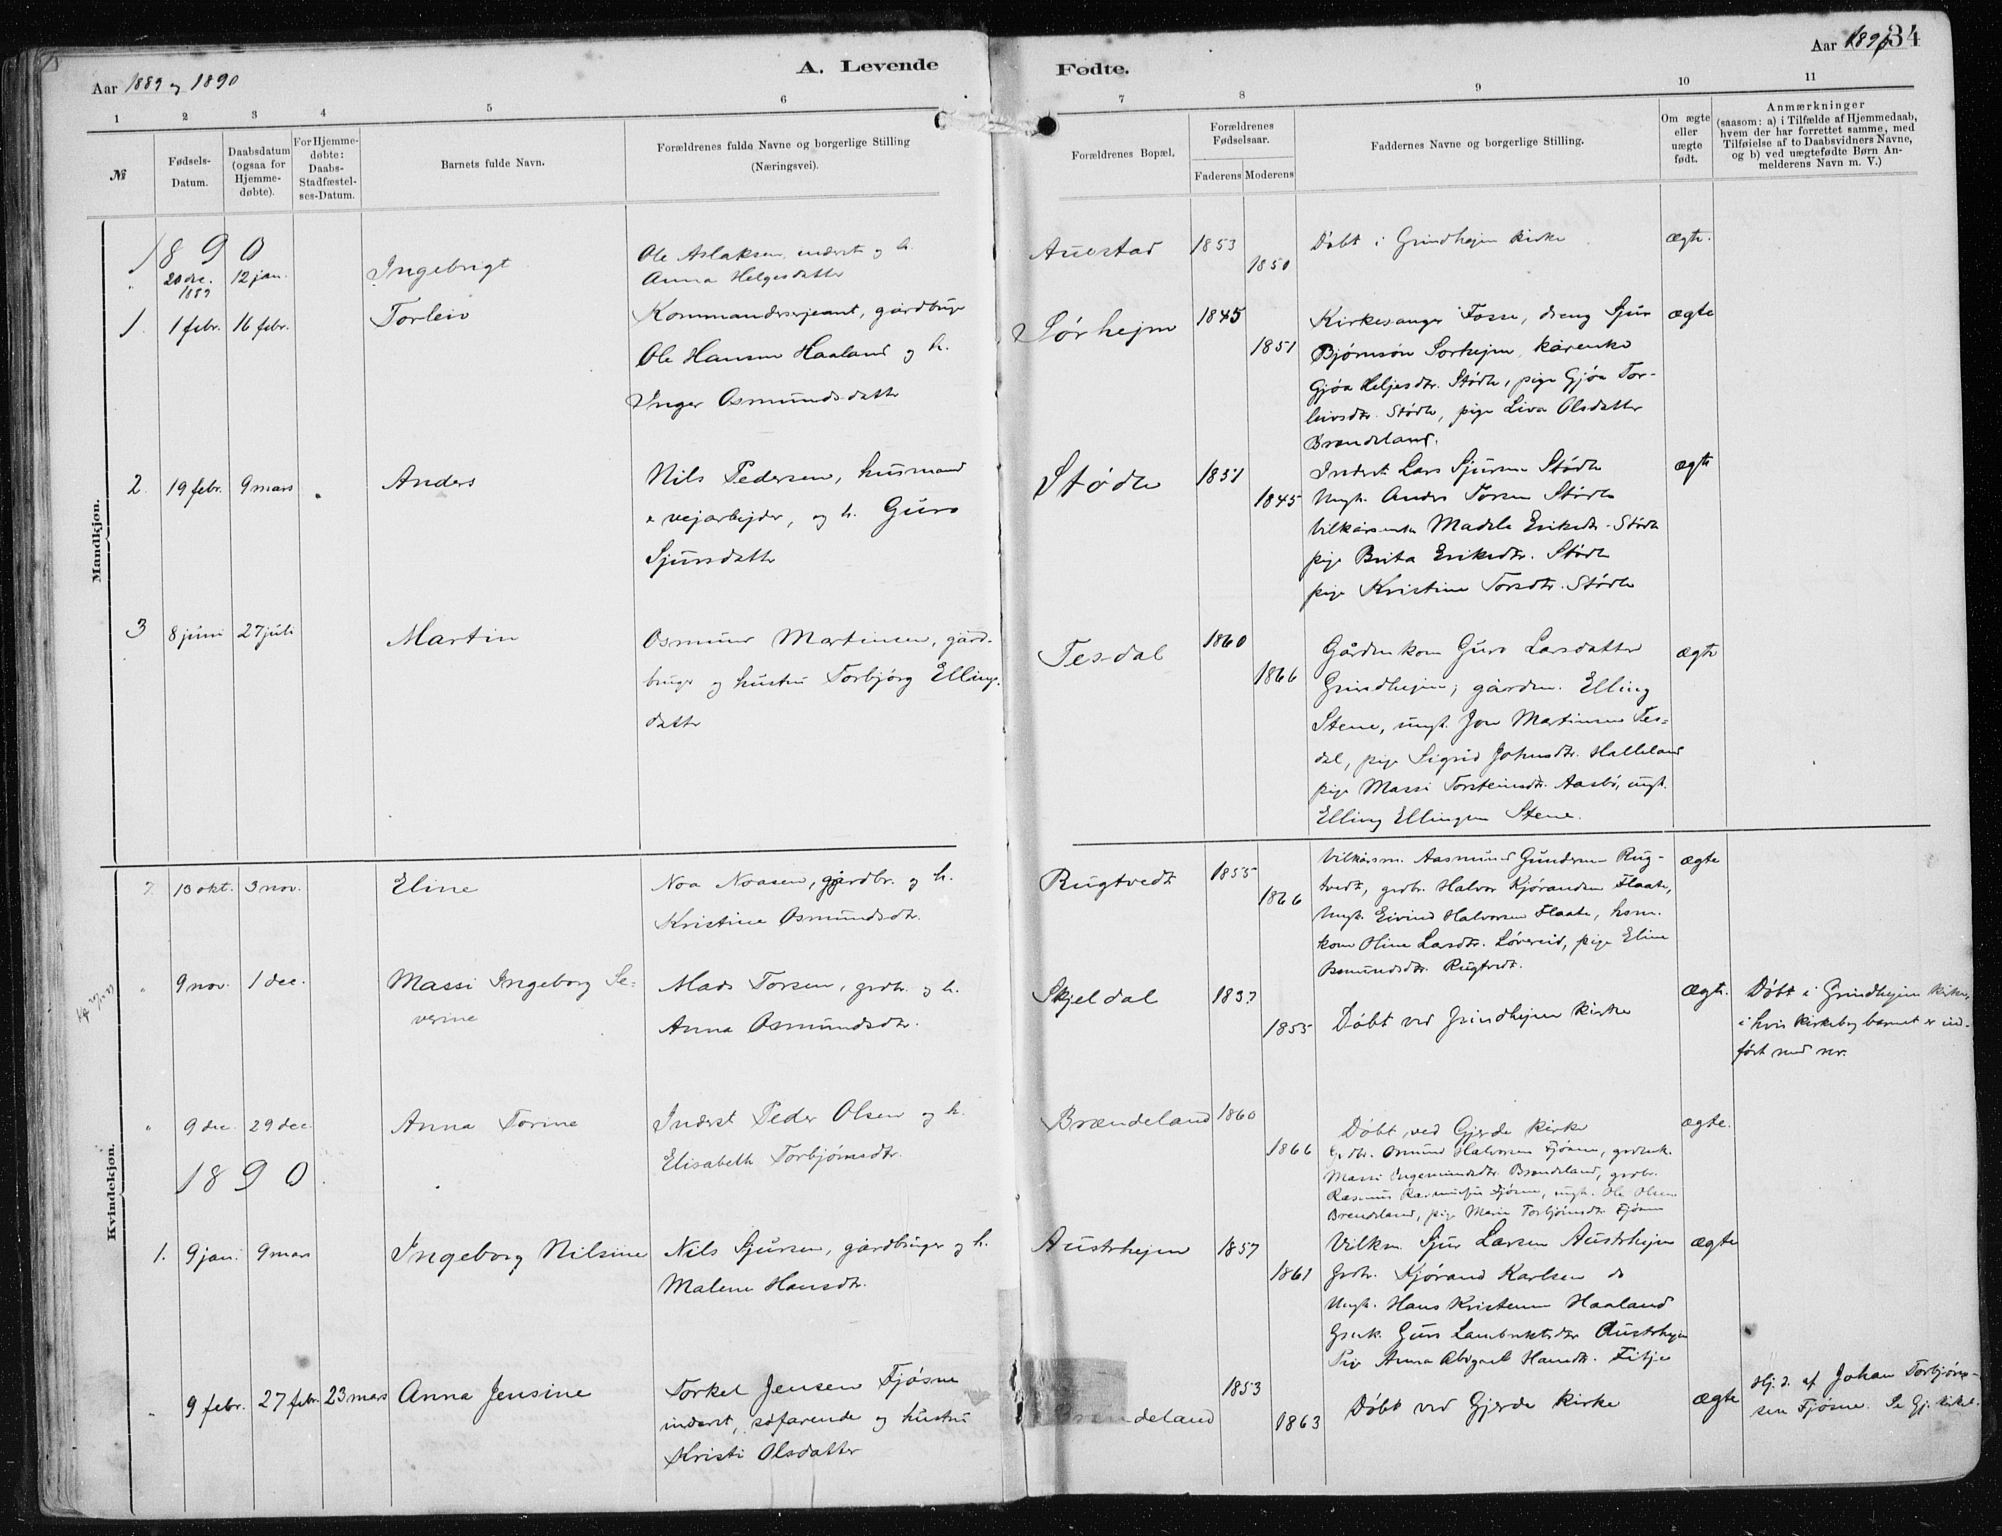 Aar 1889 og 1890
A. Levende
Fødte.
Aar 1890
34
1 2 3 4 5 6 7 8 9 10 11
№
Fødsels-
Datum.
Daabsdatum
(ogsaa for
Hjemme-
døbte).
For Hjemme-
døbte:
Daabs-
Stadfæstel-
ses-Datum.
Barnets fulde Navn.
Forældrenes fulde Navne og borgerlige Stilling
(Næringsvei).
Forældrenes Bopæl.
Forældrenes
Fødselsaar.
Faderens Moderens
Faddernes Navne og borgerlige Stilling.
Om ægte
eller
uægte
født.
Anmærkninger
(saasom: a) i Tilfælde af Hjemmedaab,
hvem der har forrettet samme, med
Tilføielse af to Daabsvidners Navne,
og b) ved uægtefødte Børn An-
melderens Navn m. V.)
Mandkjøn.
1890
" 20 dec. 1889
12 jan.
Ingebrigt
Ole Aslaksen, inderst og h.
Anna Helgesdatter
Auestad
1853
1850
Døbt i Grindhejm kirke
ægte.
1. 1 febr. 16 febr.
Torleiv
Kommandersergeant, gårdbruger
Ole Hansen Haaland og h.
Inger Osmundsdatter
Sørhejm
1845
1851
Kirkesanger Fosse, dreng Sjur
Bjørnsøn Sørhejm, kårenke
Gjøa Heljesdtr. Stødle, pige Gjøa Tor-
leivsdtr. Stødle, pige Liva Olsdatter
Brændeland.
ægte
2. 19 febr. 9 mars "
Anders
Nils Pedersen, husmand
& vejarbejder, og h. Guro
Sjursdatter
Stødle
1851
1845
Inderst Lars Sjursen Stødle
Ungk. Anders Torsen Stødle
Vilkårsenke Madele Eriksdtr. Stødle
pige Brita Eriksdtr. Stødle
pige Kristine Torsdtr. Stødle
ægte
3 8 juni 27 juli
Martin
Osmund Martinsen, gård-
bruger og hustru Torbjørg Ellings-
datter
Tesdal
1860
1866
Gårdm.kone Guro Larsdatter
Grindhejm, gårdm. Elling
Stene, ungk. Jon Martinsen Tes-
dal, pige Sigrid Johnsdtr. Halleland
pige Massi Torsteinsdtr. Aasbø, ungk.
Elling Ellingsen Stene.
ægte
Kvindekjøn.
7. 13 okt. 3 nov.
Eline
Noa Noasen, gårdbr. og h.
Kristine Osmundsdtr.
Rugtvedt
1855
1866
Vilkårsm. Aasmund Gundersen Rug-
tvedt, grdbr. Halvor Kjørandsen Flaate,
Ungk. Eivind Halvorsen Flaate, hsm.
kone Oline Larsdtr. Løvereid, pige Eline
Osmundsdtr. Rugtvedt.
ægte
" 9 nov. 1 dec.
Massi Ingeborg Se-
verine
Mads Torsen, grdbr. og h.
Anna Osmundsdtr.
Skjeldal
1837
1855
Døbt ved Grindhejm kirke
ægte.
Døbt i Grindhejm kirke,
i hvis kirkebog barnet er ind-
ført med nr.
" 9 dec. 29 dec.
Anna Torine
Inderst Peder Olsen og h.
Elisabeth Torbjørnsdtr.
Brændeland
1860
1866
Døbt ved Gjerde kirke
Grdbr. Osmund Halvorsen Fjøsne, grdenk.
Massi Ingemundsdtr. Brændeland, grdbr.
Rasmus Rasmussen Fjøsne, ungk. Ole Olsen
Brændeland, pige Marie Torbjørnsdtr. Fjøsne
ægte.
1890
1. 9 jan. 9 mars
Ingeborg Nilsine
Nils Sjursen, gårdbruger og h.
Malene Hansdtr.
Austrhejm
1857
1861
Vilkm. Sjur Larsen Austrhejm
Grdbr. Kjørand Karlsen do
Ungk. Hans Kristensen Haaland
Grenk. Guro Lambrektsdtr Austrhejm
Pige Anna Abigael Hansdtr. Fitje
ægte
" 9 febr. 27 febr. 23 mars
Anna Jensine
Torkel Jensen Fjøsne
inderst, søfarende og hustru
Kristi Olsdatter
Brændeland
1853
1863
Døbt ved Gjerde kirke
ægte
Hj. d. af Johan Torbjørn-
sen Fjøsne. Se Gj. kirkeb.